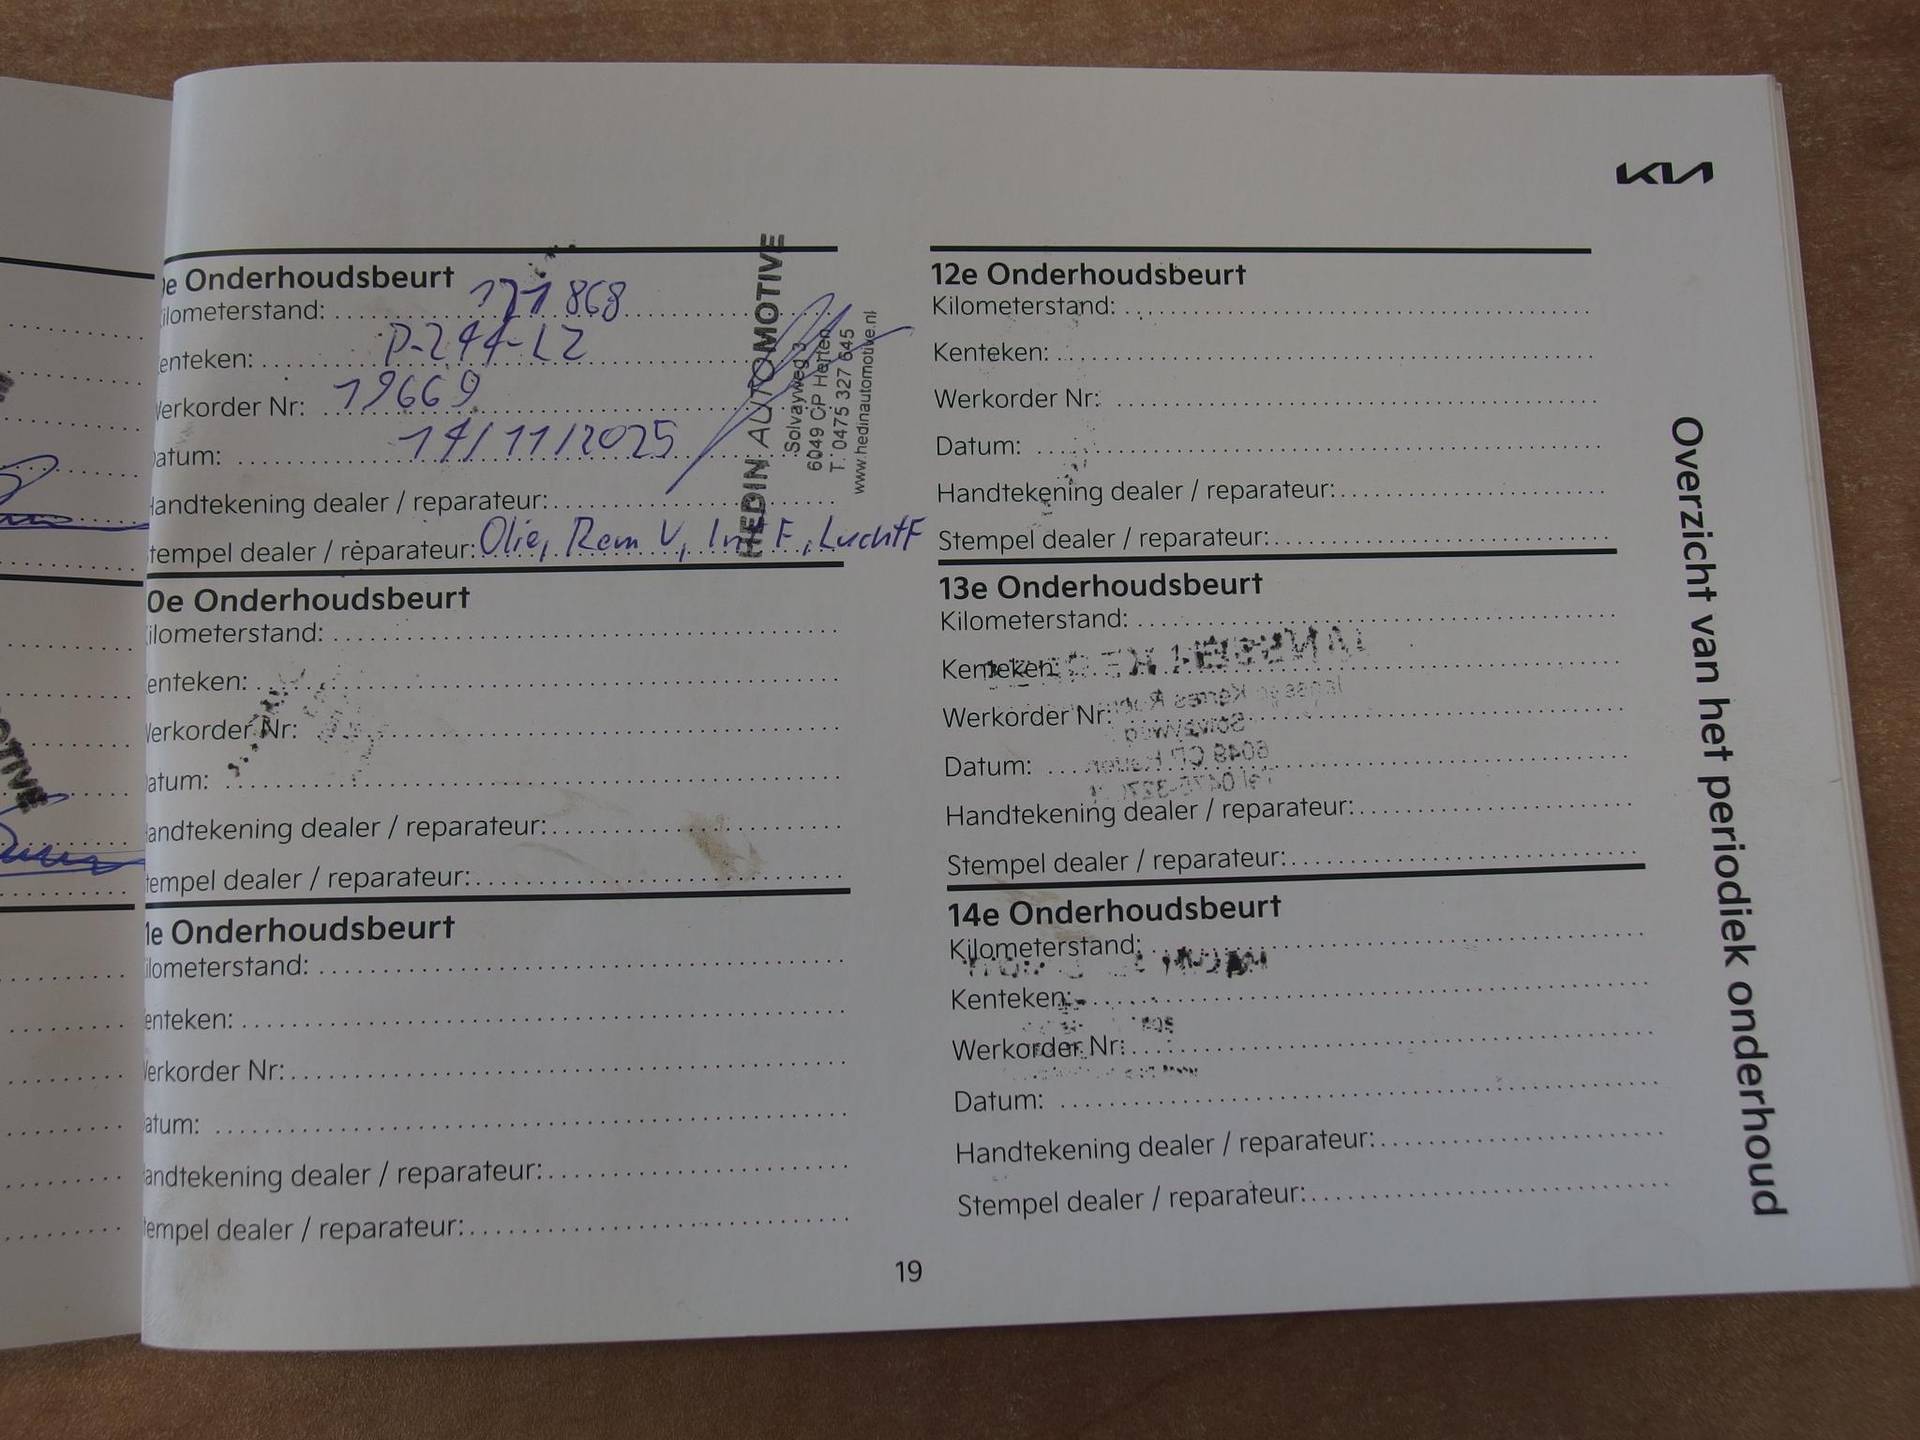 KIA
Onderhoudsbeurt
Kilometerstand: 121 868
Kenteken: P-244-LZ
Werkorder Nr: 19669
Datum: 14/11/2025
Handtekening dealer / reparateur:
Stempel dealer / reparateur: Olie, Rem V, Int F, LuchtF
HEDIN AUTOMOTIVE
Solvayweg 3
6049 CP Herten
T. 0475 327 645
www.hedinautomotive.nl
0e Onderhoudsbeurt
Kilometerstand:
Kenteken:
Werkorder Nr:
Datum:
Handtekening dealer / reparateur:
Stempel dealer / reparateur:
1e Onderhoudsbeurt
Kilometerstand:
Kenteken:
Werkorder Nr:
Datum:
Handtekening dealer / reparateur:
Stempel dealer / reparateur:
12e Onderhoudsbeurt
Kilometerstand:
Kenteken:
Werkorder Nr:
Datum:
Handtekening dealer / reparateur:
Stempel dealer / reparateur:
13e Onderhoudsbeurt
Kilometerstand:
Kenteken:
Werkorder Nr:
Datum:
Handtekening dealer / reparateur:
Stempel dealer / reparateur:
14e Onderhoudsbeurt
Kilometerstand:
Kenteken:
Werkorder Nr:
Datum:
Handtekening dealer / reparateur:
Stempel dealer / reparateur:
Overzicht van het periodiek onderhoud
19